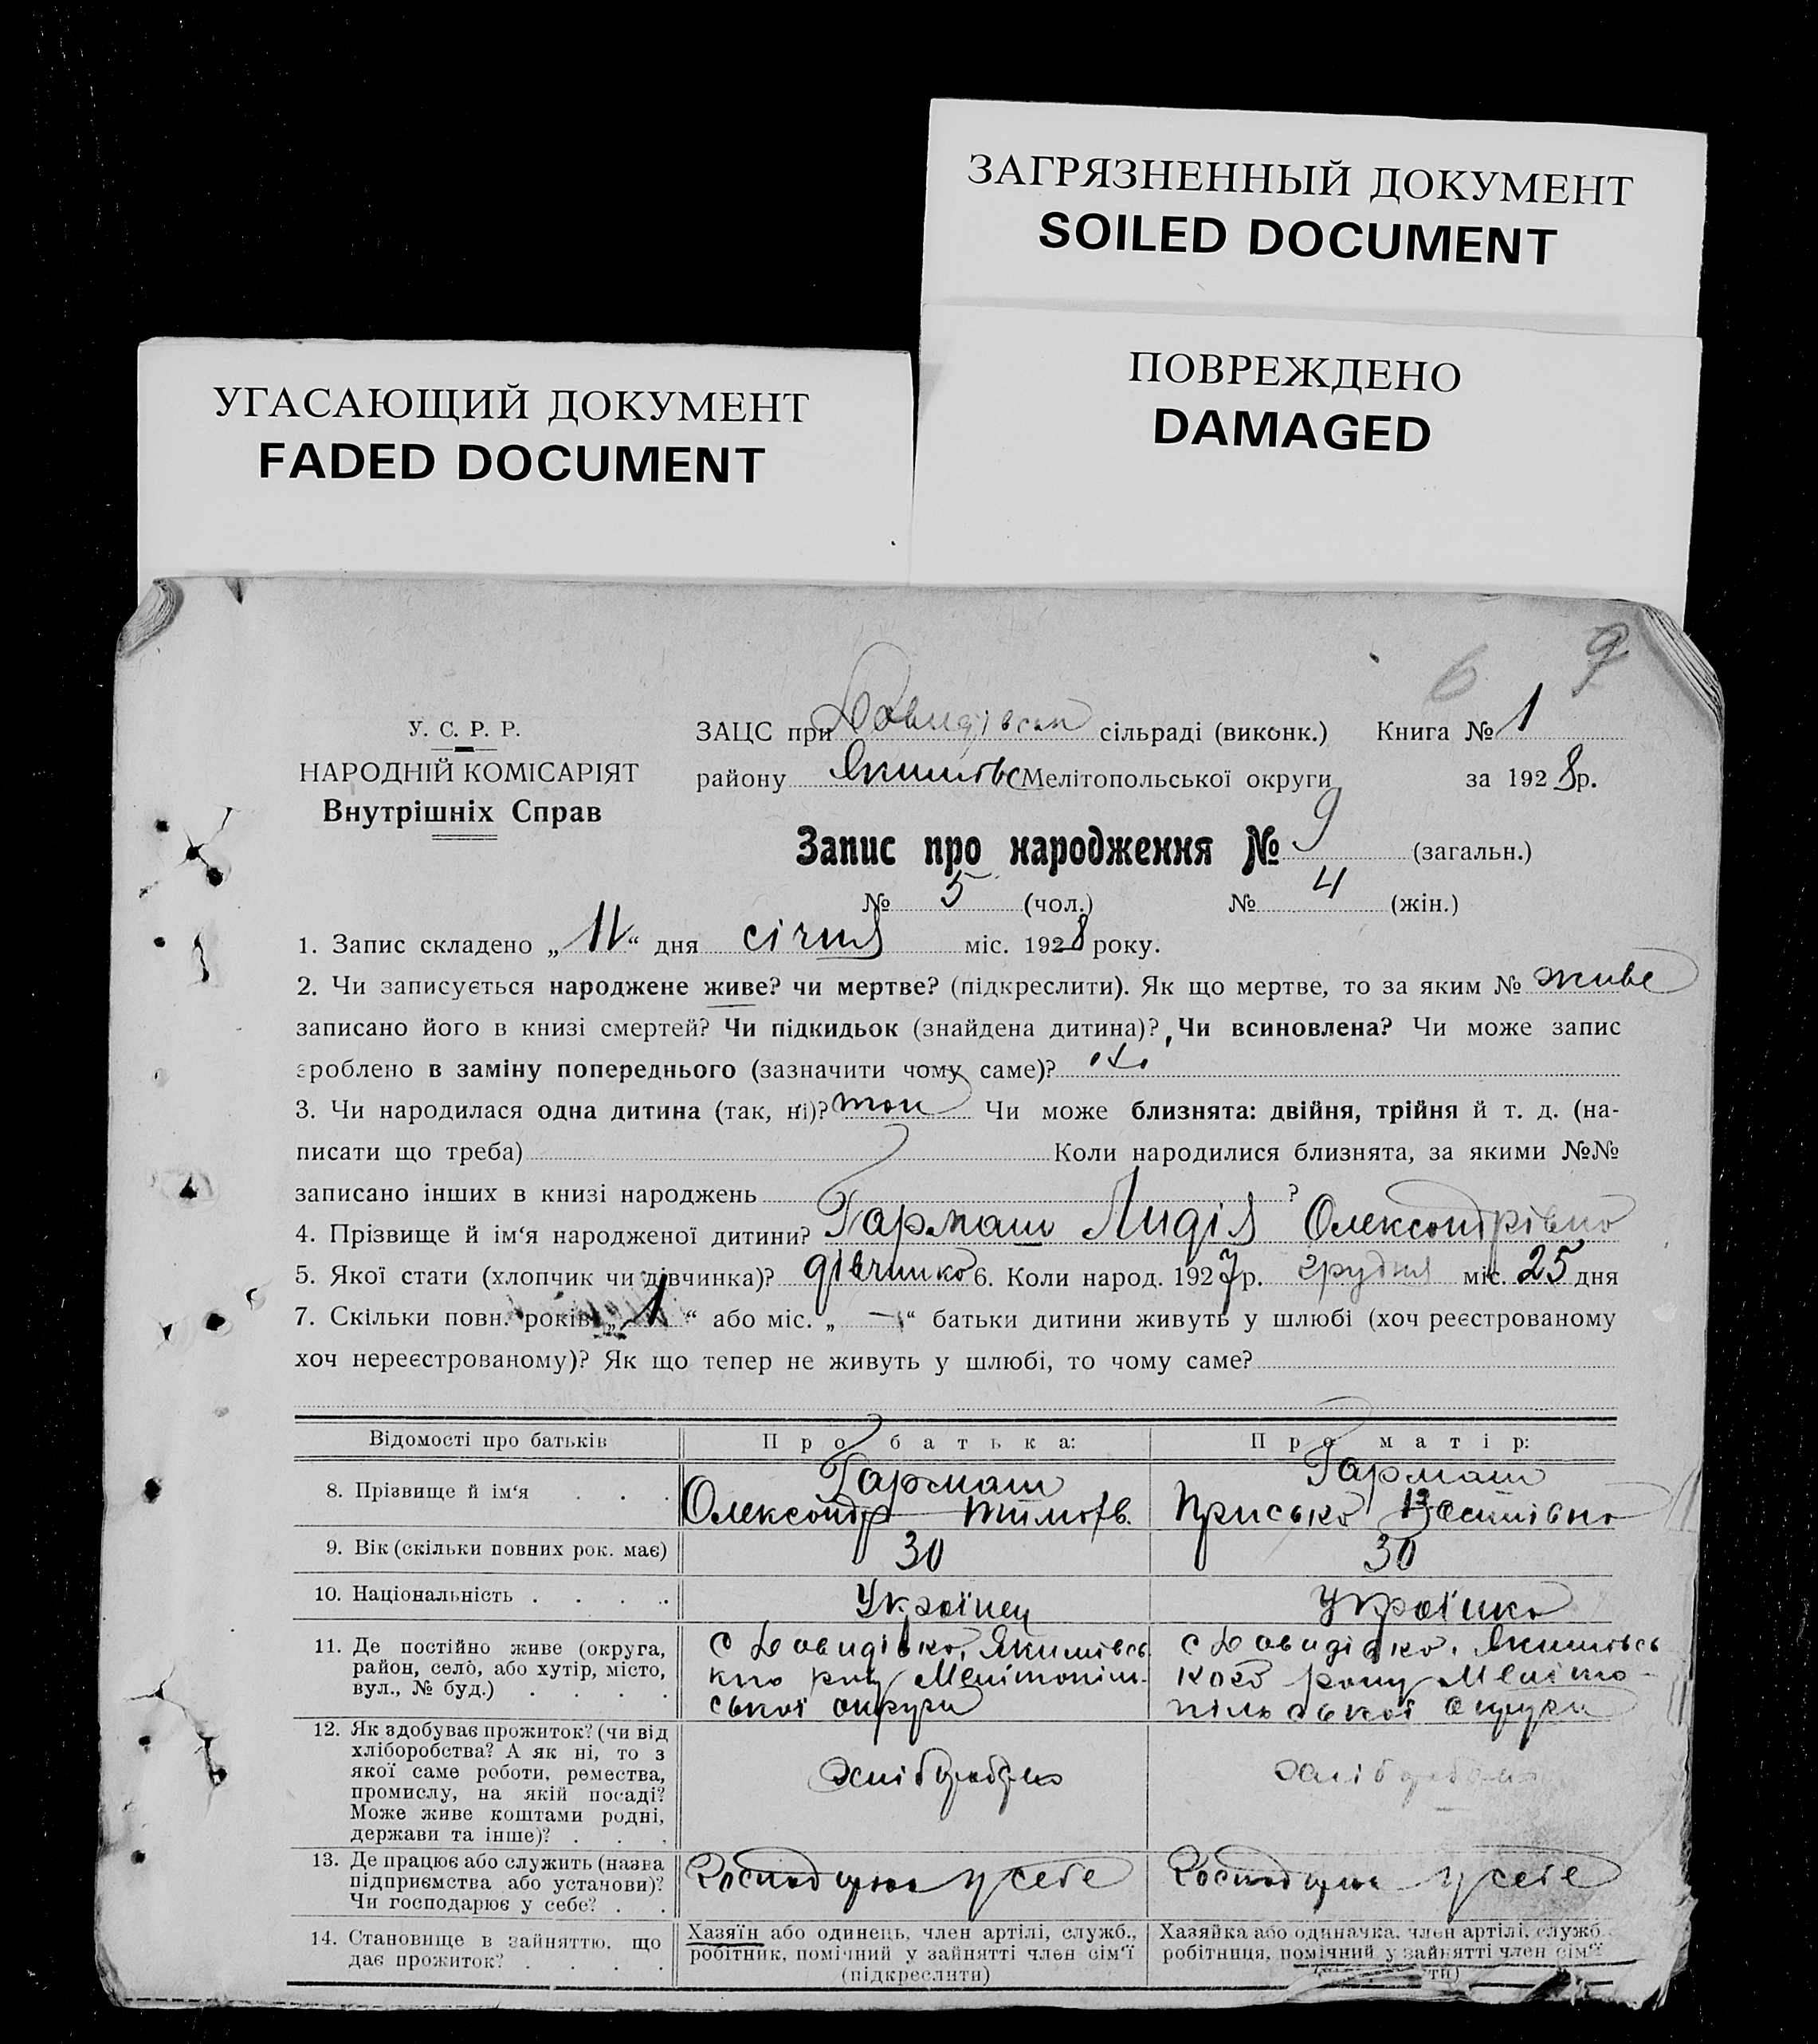 ЗАГРЯЗНЕННЫЙ ДОКУМЕНТ
SOILED DOCUMENT
УГАСАЮЩИЙ ДОКУМЕНТ
FADED DOCUMENT
ПОВРЕЖДЕНО
DAMAGED
6 9
У. С. Р. Р.
НАРОДНІЙ КОМІСАРІЯТ
Внутрішніх Справ
ЗАЦС при Давидівськ сільраді (виконк.) Книга № 1
району Якимівс Мелітопольської округи за 1928 р.
Запис про народження № 9 (загальн.)
№ 5 (чол.) № 4 (жін.)
1. Запис складено „11“ дня січня міс. 1928 року.
2. Чи записується народжене живе? чи мертве? (підкреслити). Як що мертве, то за яким № живе
записано його в книзі смертей? Чи підкидьок (знайдена дитина)? Чи всиновлена? Чи може запис
зроблено в заміну попереднього (зазначити чому саме)?
3. Чи народилася одна дитина (так, ні)? так Чи може близнята: двійня, трійня й т. д. (на-
писати що треба) Коли народилися близнята, за якими №№
записано інших в книзі народжень ?
4. Прізвище й ім‘я народженої дитини? Гармаш Лидія Олександрівна
5. Якої стати (хлопчик чи дівчинка)? дівчинка 6. Коли народ. 1927 р. грудня міс. 25 дня
7. Скільки повн. років „1“ або міс. „—“ батьки дитини живуть у шлюбі (хоч реєстрованому
хоч нереєстрованому)? Як що тепер не живуть у шлюбі, то чому саме?
Відомості про батьків Про батька: Про матір:
8. Прізвище й ім‘я . . . Гармаш Олександр Тимофв. Гармаш Приська
9. Вік (скільки повних рок. має) 30 30
10. Національність . . . . Українец Українка
11. Де постійно живе (округа,
район, село, або хутір, місто,
вул., № буд.) . . . .
с Давидівка, Якимівсь
кого рну Мелітопіль-
ської округи
с Давидівка, Якимівсь
кого рону Меліто-
пільської округи
12. Як здобуває прожиток? (чи від
хліборобства? А як ні, то з
якої саме роботи, ремества,
промислу, на якій посаді?
Може живе коштами родні,
держави та інше)? . . .
13. Де працює або служить (назва
підприємства або установи)?
Чи господарює у себе? . .
Господарює у себе
Господарює у себе
14. Становище в зайняттю, що
дає прожиток? . . . .
Хазяїн або одинець, член артілі, служб.,
робітник, помічний у зайнятті член сім‘ї
(підкреслити)
Хазяйка або одиначка, член артілі, служб.
робітниця, помічний у зайнятті член сім‘ї